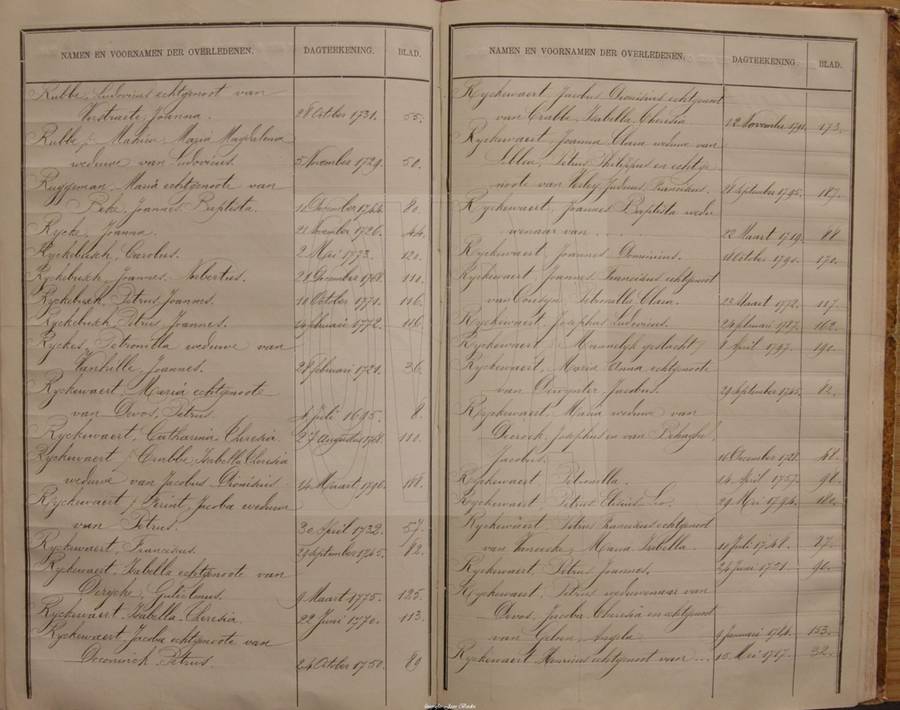 NAMEN EN VOORNAMEN DER OVERLEDENEN. DAGTEEKENING. BLAD.
Rubbe, Ludovicus echtgenoot van
Verstraete, Joanna. 28 October 1731. 55.
Rubbe, Maria Magdalena
weduwe van Ludovicus. 5 November 1729. 50.
Ruggeman, Maria echtgenoote van
Beke, Joannes Baptista. 11 December 1744. 80.
Rycke, Joanna. 21 November 1726. 44.
Ryckebusch, Carolus. 2 Mei 1773. 120.
Ryckebusch, Joannes 21 December 1768. 110.
Ryckebusch, Petrus Joannes. 10 October 1771. 116.
Ryckebusch, Petrus Joannes. februarii 1772. 116.
Ryckes, Petronilla weduwe van
Joannes. 28 februarii 1721. 36.
Ryckewaert, Maria echtgenoote
van Devos, Petrus. 4 Julii 1695. 8.
Ryckewaert, Catharina Theresia. 27 Augustus 1768. 110.
Ryckewaert / Crabbe, Isabella Theresia
weduwe van Jacobus Dionisius. 14 Maart 1796. 188.
Ryckewaert / Jacoba weduwe
van Petrus. 30 April 1732. 57.
Ryckewaert, Franciscus. 29 September 1745. 82.
Ryckewaert, Isabella echtgenoote van
Derycke, Gulielmus. 9 Maart 1775. 125.
Ryckewaert, Isabella Theresia. 22 Junii 1770. 113.
Ryckewaert, Jacoba echtgenoote van
Deconinck, Petrus. 24 October 1750. 89
NAMEN EN VOORNAMEN DER OVERLEDENEN. DAGTEEKENING. BLAD.
Ryckewaert, Jacobus Dionisius echtgenoot
van Crabbe, Isabella Theresia 12 November 1791. 173.
Ryckewaert, Joanna Clara weduwe van
Petrus Philippus en echtge
noote van Franciscus. 28 September 1795. 187.
Ryckewaert, Joannes Baptista wedu
wenaar van . . . . 22 Maart 1749. 88.
Ryckewaert, Joannes Dominicus. 11 October 1790. 170.
Ryckewaert Joannes Franciscus echtgenoot
van Petronilla Clara. 23 Maart 1772. 117.
Ryckewaert, Josephus Ludovicus. 24 februarii 1787. 162.
Ryckewaert, (Mannelyk geslacht) 8 April 1797. 190.
Ryckewaert, Maria Anna echtgenoote
van Jacobus. 29 September 1745. 82.
Ryckewaert, Maria weduwe van
Josephus en van
Jacobus. 16 December 1728. 48.
Ryckewaert, Petronilla. 14 April 1757. 96.
Ryckewaert, Petrus 29 Mei 1794. 180.
Ryckewaert, Petrus Franciscus echtgenoot
van Maria Isabella. 11 Julii 1748. 87.
Ryckewaert, Petrus Joannes. 24 Junii 1751. 90.
Ryckewaert, Petrus weduwenaar van
Devos, Jacoba Theresia en echtgenoot
van Angela 9 Januarii 153.
Ryckewaert Henricus echtgenoot van ... 15 Mei 1717. 32.